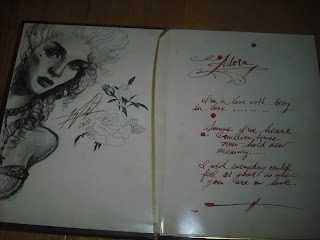 Alora
I'm in love with being
in love..........
Songs I've heard
a million times
now hold new
meaning.
I wish everyday could
feel as good as when
you are in love.